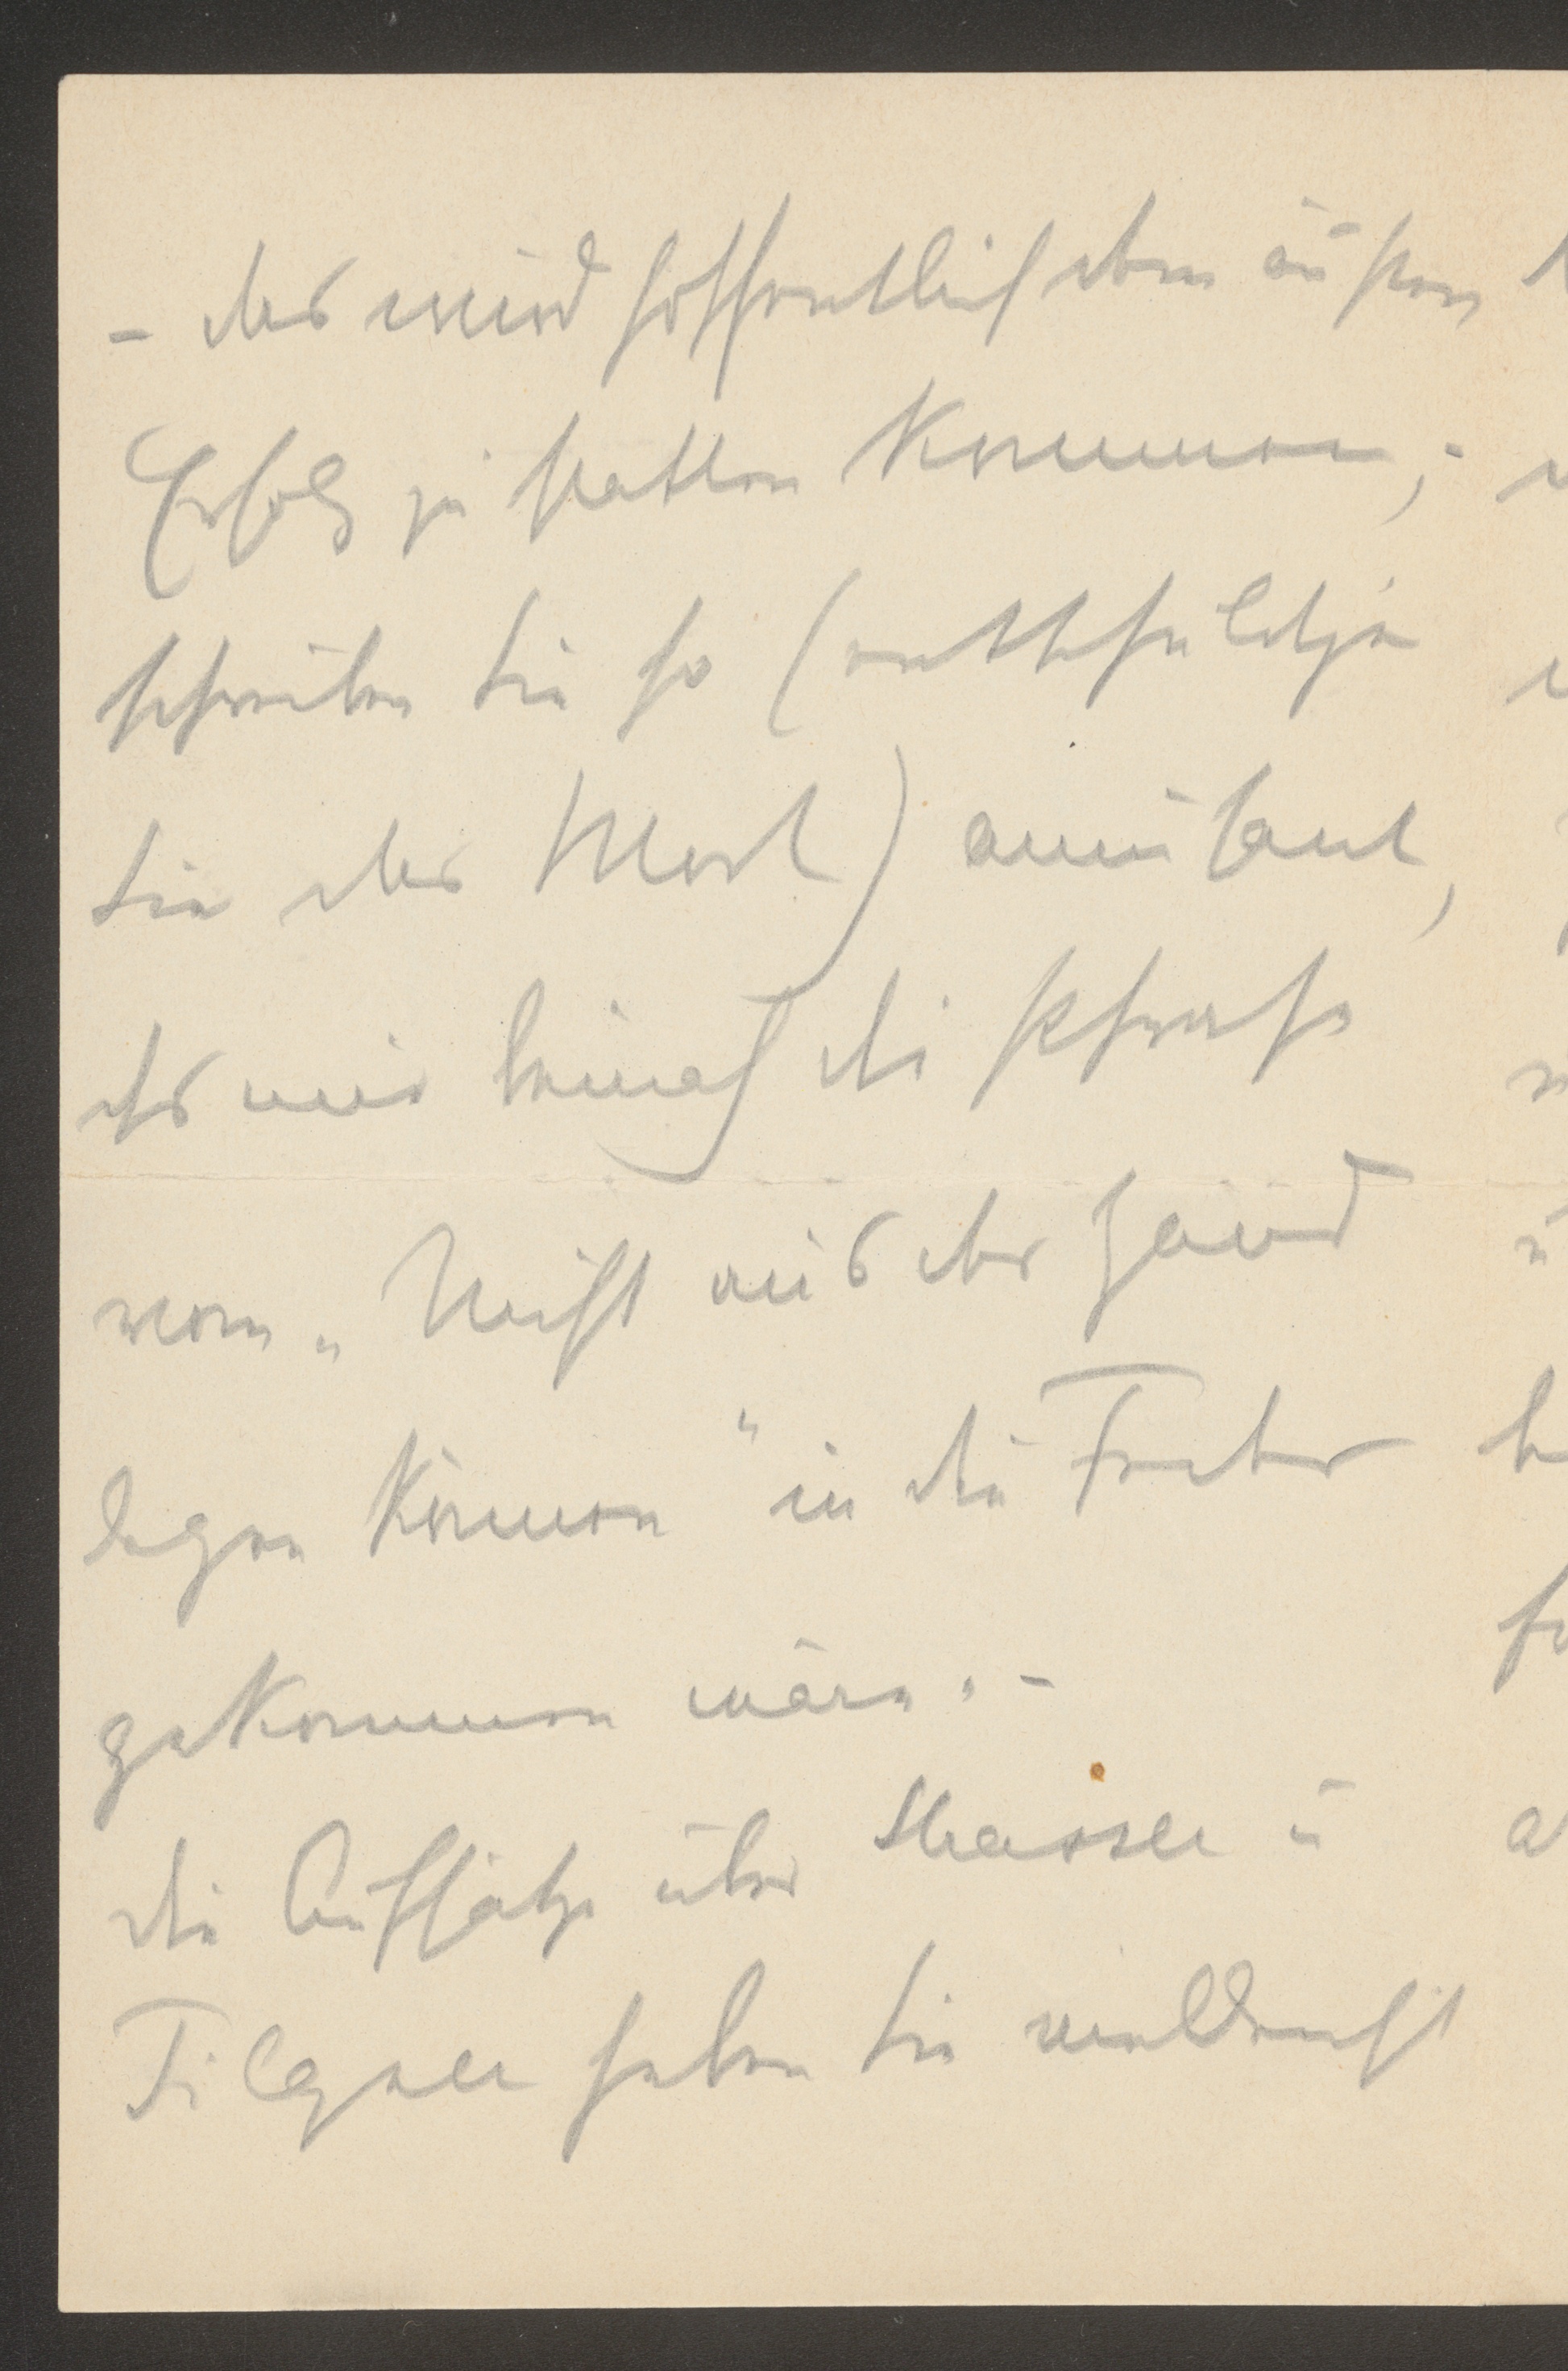 – das wird hoffentlich dem äußern
Erfolg zu statten kommen; –
schreiben Sie so (entschuldigen
Sie das Wort) amüsant,
daß mir beinah die Phrase
vom „Nicht aus der Hand
legen können“ in die Feder
gekommen wäre. –
Die Aufsätze über Mauser u
Tilgner haben Sie vielleicht